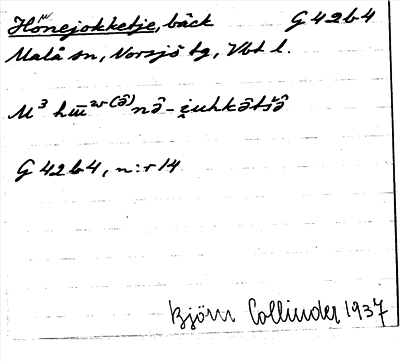 Hönejokketje, bäck G 42 b 4
Malå sn, Norsjö tg, Vbt l.
M³ hɯ̄ʷ⁽ᵊ̂⁾nə̂-i̯uhkə̂tšə̂
G 42 b 4, n:r 14
Björn Collinder 1937